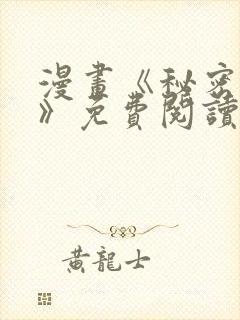 漫畫《秘密
》免費閱讀
黃龍士